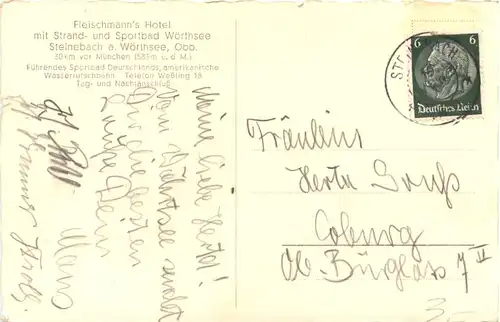 Fleischmann's Hotel
mit Strand- und Sportbad Wörthsee
Steinebach a. Wörthsee, Obb.
30 km vor München (583 m ü. d. M.)
Führendes Sportbad Deutschlands, amerikanische
Wasserrutschbahn. Telefon Weßling 18
Tag- und Nachtanschluß
6 6
Deutsches Reich
Meine liebe Herta!
Vom Wörthsee sendet
Dir die besten
Grüße Dein
Hans
Fräulein
Herta
Coburg
Ob. Bürglaß 7 II
3.-